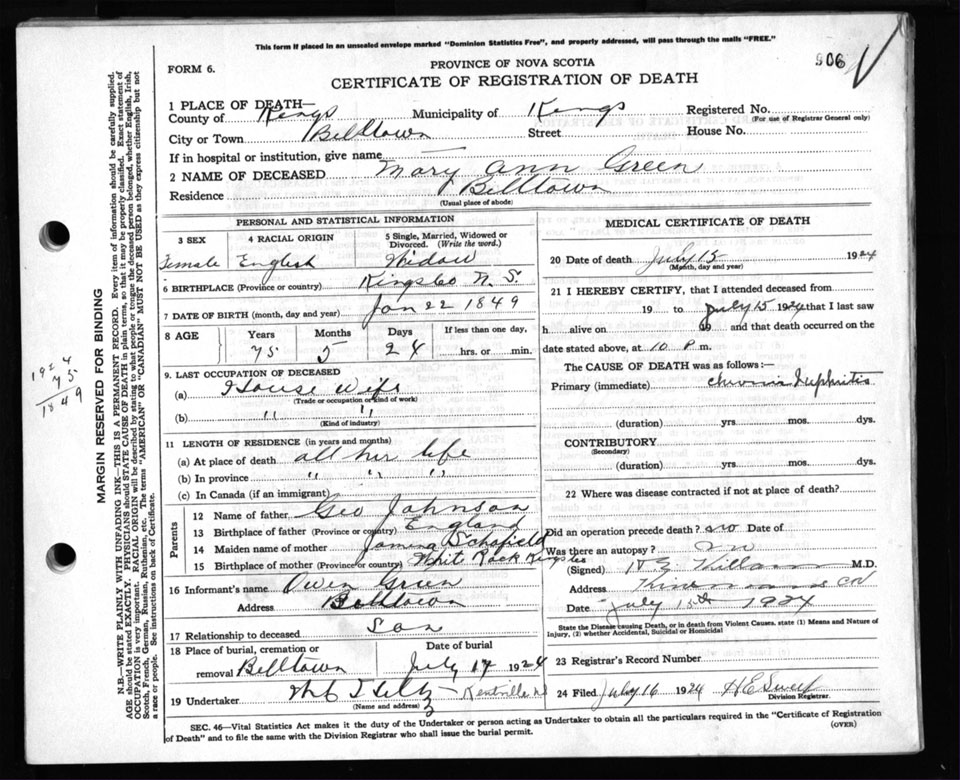 This form if placed in an unsealed envelope marked "Dominion Statistics Free", and properly addressed, will pass through the mails "FREE."
FORM 6.
PROVINCE OF NOVA SCOTIA
906
CERTIFICATE OF REGISTRATION OF DEATH
1 PLACE OF DEATH—
County of Kings Municipality of Kings Registered No.
(For use of Registrar General only)
City or Town Billtown Street House No.
If in hospital or institution, give name —
2 NAME OF DECEASED Mary Ann Green
Residence Billtown
(Usual place of abode)
PERSONAL AND STATISTICAL INFORMATION
3 SEX 4 RACIAL ORIGIN 5 Single, Married, Widowed or Divorced. (Write the word.)
Female English Widow
6 BIRTHPLACE (Province or country) Kings Co N. S.
7 DATE OF BIRTH (month, day and year) Jan 22 1849
8 AGE Years Months Days If less than one day,
75 5 24 hrs. or min.
9. LAST OCCUPATION OF DECEASED
(a) House Wife
(Trade or occupation or kind of work)
(b) " "
(Kind of industry)
11 LENGTH OF RESIDENCE (in years and months)
(a) At place of death all her life
(b) In province " " "
(c) In Canada (if an immigrant)
Parents
12 Name of father Geo Johnson
13 Birthplace of father (Province or country) England
14 Maiden name of mother Schofield
15 Birthplace of mother (Province or country) Whit Rock
16 Informant's name Owen Green
Address Billtown
17 Relationship to deceased Son
18 Place of burial, cremation or removal Date of burial
Billtown July 17 1924
19 Undertaker Kentville
(Name and address)
MEDICAL CERTIFICATE OF DEATH
20 Date of death July 15 1924
(Month, day and year)
21 I HEREBY CERTIFY, that I attended deceased from
19 to July 15 1924 that I last saw
h alive on 19 and that death occurred on
date stated above, at 10 P. m.
The CAUSE OF DEATH was as follows:—
Primary (immediate) chronic Nephritis
(duration) yrs. mos. dys.
CONTRIBUTORY
(Secondary)
(duration) yrs. mos. dys.
22 Where was disease contracted if not at place of death?
Did an operation precede death? no Date of
Was there an autopsy? no
(Signed) M.D.
Address
Date July 15th 1924
State the Disease causing Death, or in death from Violent Causes. state (1) Means and Nature of Injury, (2) whether Accidental, Suicidal or Homicidal
23 Registrar's Record Number
24 Filed July 16 1924 H E
Division Registrar.
SEC. 46—Vital Statistics Act makes it the duty of the Undertaker or person acting as Undertaker to obtain all the particulars required in the "Certificate of Registration of Death" and to file the same with the Division Registrar who shall issue the burial permit.
(OVER)
MARGIN RESERVED FOR BINDING
N.B.—WRITE PLAINLY WITH UNFADING INK—THIS IS A PERMANENT RECORD. Every item of information should be carefully supplied.
AGE should be stated EXACTLY. PHYSICIANS should STATE CAUSE OF DEATH in plain terms, so that it may be properly classified. Exact statement of
OCCUPATION is very important. RACIAL ORIGIN will be described by stating to what people or tongue the deceased person belonged, whether English, Irish,
Scotch, French, German, Russian, Ruthenian, etc. The terms "AMERICAN" OR "CANADIAN" MUST NOT BE USED as they express citizenship but not
a race or people. See instructions on back of Certificate.
1924
75
1849